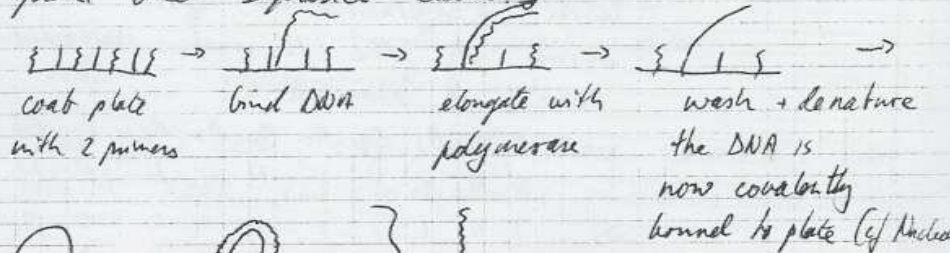 coat plate
with 2 primers
bind DNA
elongate with
polymerase
wash + denature
the DNA is
now covalently
bound to plate